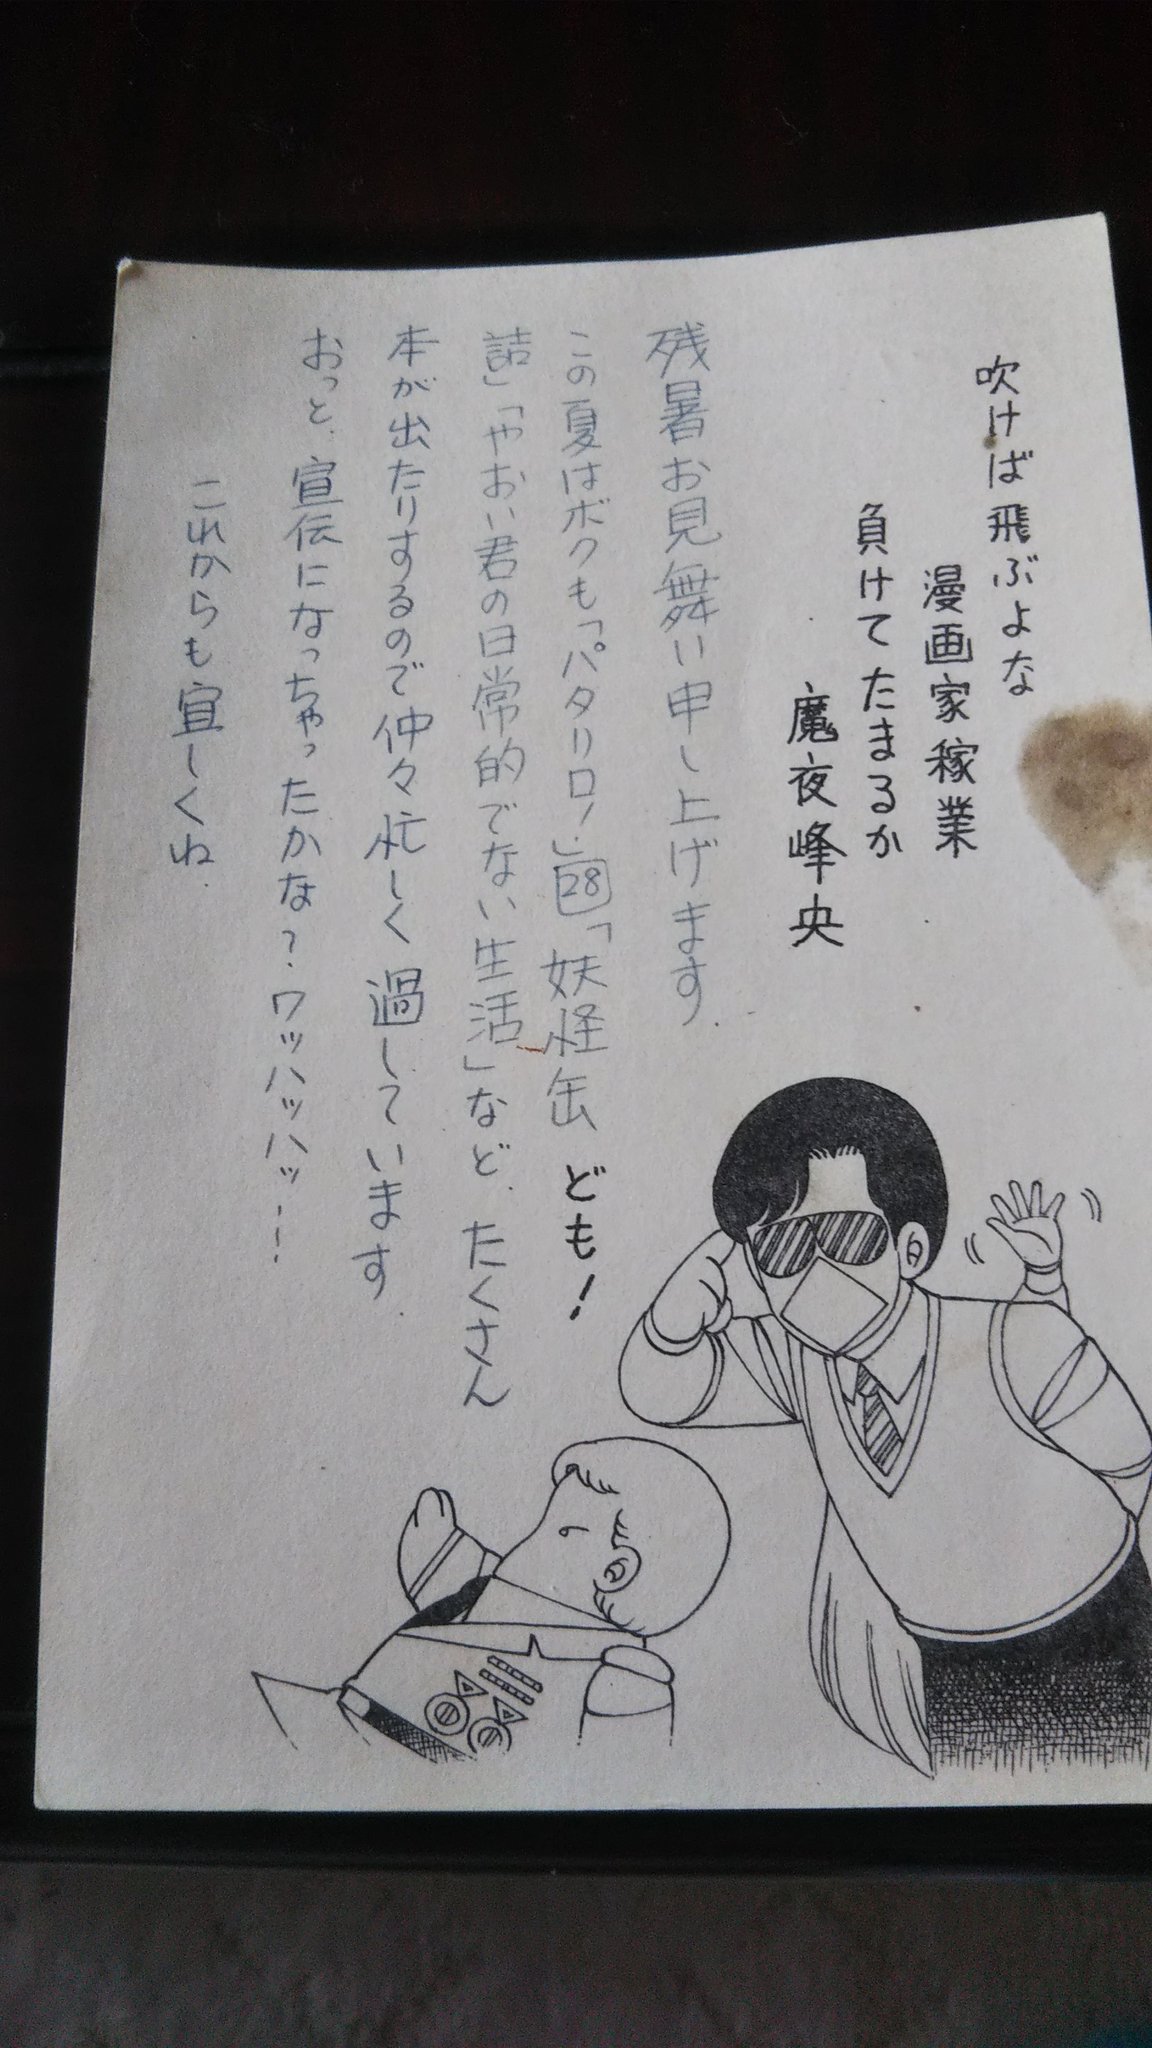 吹けば飛ぶよな
漫画家稼業
負けてたまるか
魔夜峰央
残暑お見舞い申し上げます.
この夏はボクも「パタリロ!」28「妖怪缶
詰」「やおい君の日常的でない生活」など.たくさん
本が出たりするので仲々忙しく過しています.
おっと.宣伝になっちゃったかな?ワッハッハッハッ…!
これからも宜しくね.
ども!